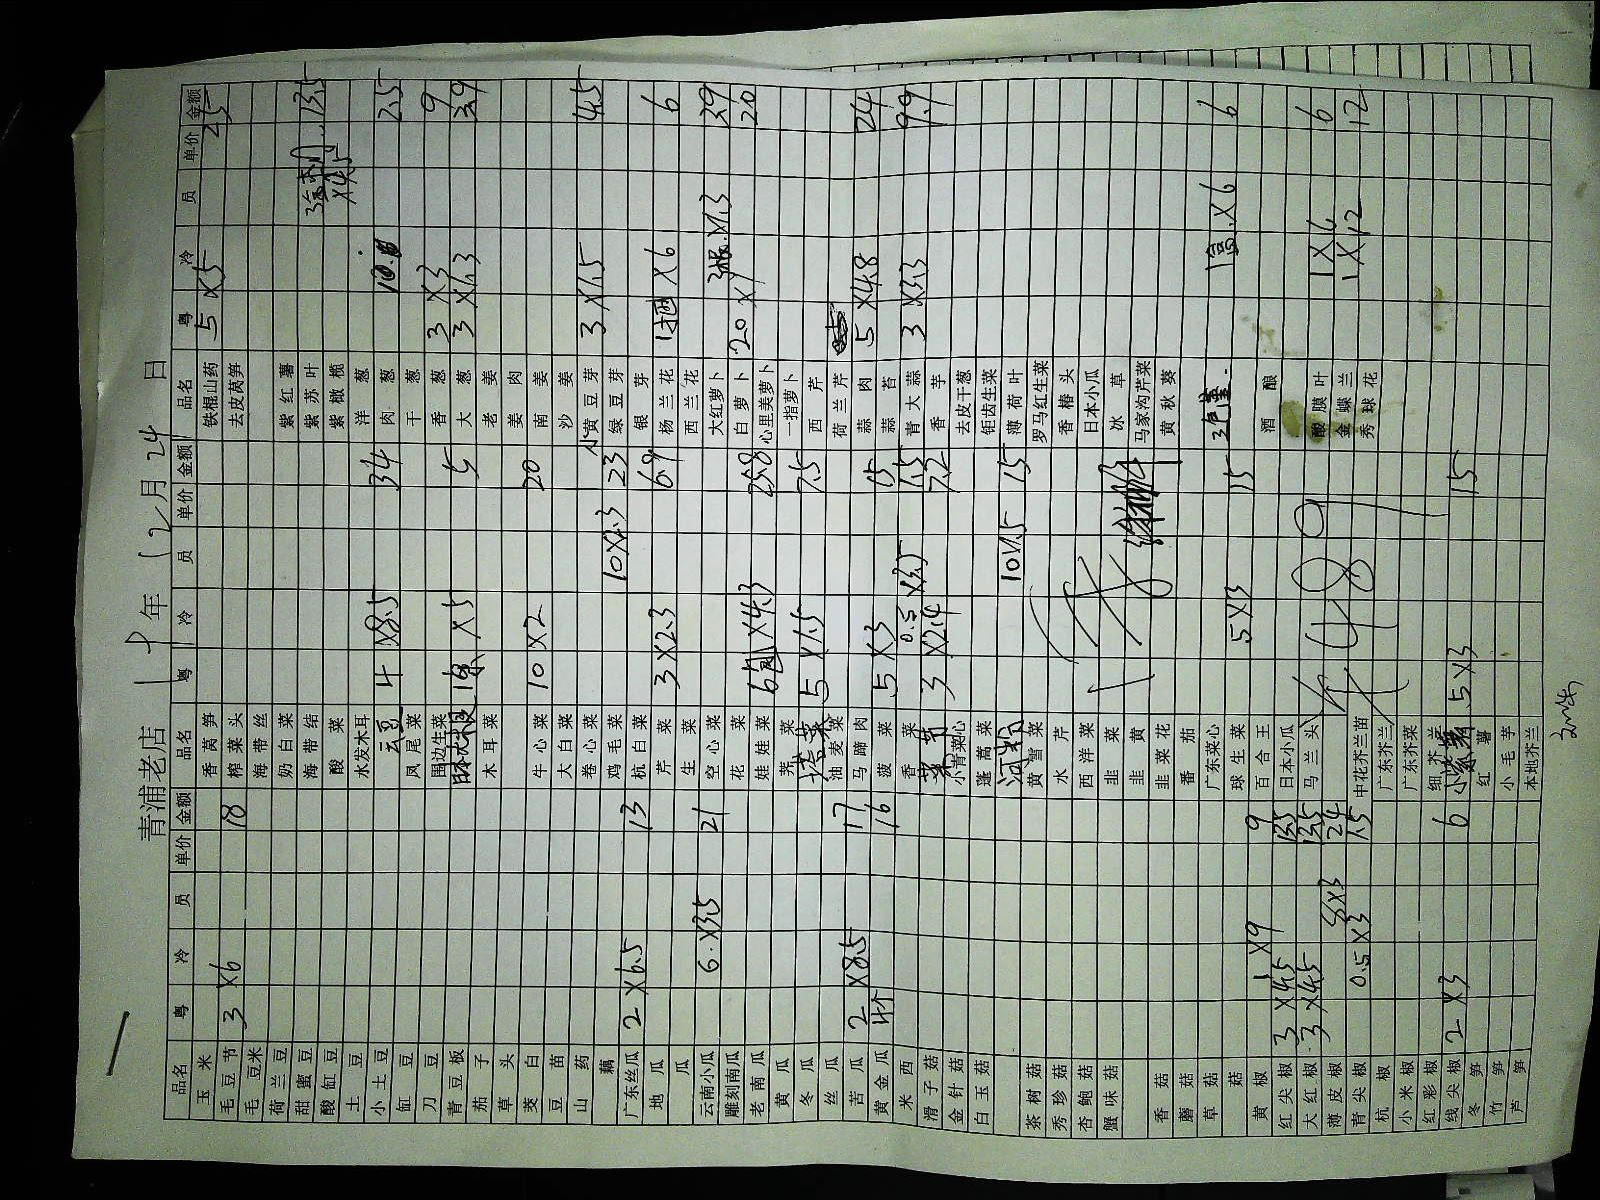 青浦老店 19年12月24日
品名 粤 冷 员 单价 金额 品名 粤 冷 员 单价 金额 品名 粤 冷 员 单价 金额
玉米 香莴笋 铁棍山药 5×5 25
毛豆节 3×6 18 榨菜头 去皮莴笋
毛豆米 海带丝
荷兰豆 奶白菜 紫红薯
甜蜜豆 海带结 紫苏叶 ×4.5 13.5
酸缸豆 酸菜 紫橄榄
土豆 水发木耳 洋葱
小土豆 云豆 4×8.5 34 肉葱 2.5
缸豆 凤尾菜 干葱
刀豆 围边生菜 香葱 3×3 9
青豆板 ×5 5 大葱 3×1.3 3.9
茄子 木耳菜 老姜
草头 姜肉
茭白 牛心菜 10×2 20 南姜
豆苗 大白菜 沙姜
山药 卷心菜 小黄豆芽 3×1.5 4.5
藕 鸡毛菜 10×2.3 23 绿豆芽
广东丝瓜 2×6.5 13 杭白菜 银芽
地瓜 芹菜 3×2.3 6.9 杨兰花 1捆×6 6
瓜 生菜 西兰花
云南小瓜 6×3.5 21 空心菜 大红萝卜 3根×1.3 3.9
雕刻南瓜 花菜 白萝卜 20×1 20
老南瓜 娃娃菜 6包×4.3 25.8 心里美萝卜
黄瓜 荠菜 一指萝卜
冬瓜 塔菜 5×1.5 7.5 西芹
丝瓜 油麦菜 荷兰芹
苦瓜 2×8.5 17 马蹄肉 蒜肉 5×4.8 24
黄金瓜 4个 16 菠菜 5×3 15 蒜苔
米西 香菜 0.5×3 1.5 青大蒜 3×3.3 9.9
滑子菇 3×2.4 7.2 香芋
金针菇 小青菜心 去皮干葱
白玉菇 蓬蒿菜 钜齿生菜
河粉 10×1.5 15 薄荷叶
茶树菇 黄雪菜 罗马红生菜
秀珍菇 水芹 香椿头
杏鲍菇 西洋菜 日本小瓜
蟹味菇 韭菜 冰草
韭黄 马家沟芹菜
香菇 韭菜花 黄秋葵
蘑菇 番茄
草菇 广东菜心 3色堇 1盒×6 6
菇 球生菜 5×3 15
黄椒 1×9 9 百合王 酒酿
红尖椒 3×4.5 13.5 日本小瓜
大红椒 3×4.5 13.5 马兰头 酸膜叶 1×6 6
薄皮椒 8×3 24 金蝶兰 1×12 12
青尖椒 0.5×3 1.5 中花芥兰苗 秀球花
杭椒 广东芥兰
小米椒 广东芥菜
红彩椒 细芥兰
线尖椒 2×3 6 小紫薯 5×3 15
冬笋 红薯
竹笋 小毛芋
芦笋 本地芥兰
489